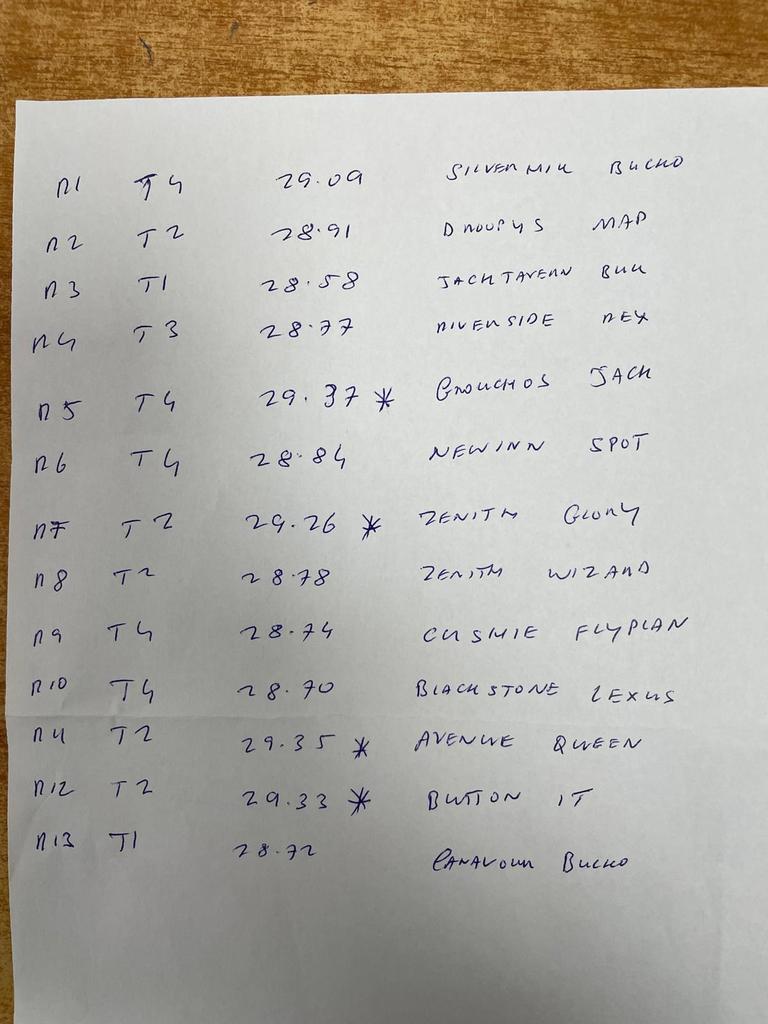 R1 T4 29.09 SILVERHILL BUCKO
R2 T2 28.91 DROOPYS MAP
R3 T1 28.58 JACKTAVERN BULL
R4 T3 28.77 RIVERSIDE REX
R5 T4 29.37 * GROUCHOS JACK
R6 T4 28.84 NEWINN SPOT
R7 T2 29.26 * ZENITH GLORY
R8 T2 28.78 ZENITH WIZARD
R9 T4 28.74 CUSHIE FLYPLAN
R10 T4 28.70 BLACKSTONE LEXUS
R11 T2 29.35 * AVENUE QUEEN
R12 T2 29.33 * BUTTON IT
R13 T1 28.72 BUCKO